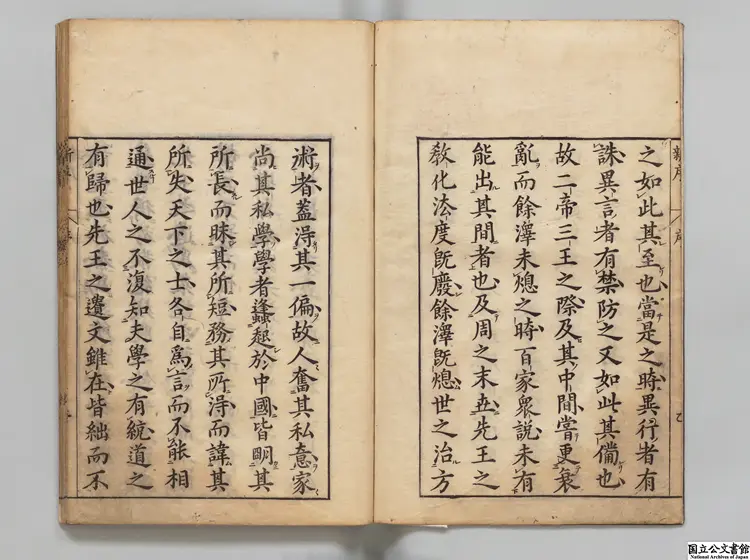 新序
序
之如此其至也當是之時異行者有
誅異言者有禁防之又如此其備也
故二帝三王之際及其中間嘗更衰
亂而餘澤未熄之時百家衆說未有
能出其間者也及周之末世先王之
敎化法度旣廢餘澤旣熄世之治方
術者蓋得其一偏故人奮其私意家
尚其私學學者蠭起於中國皆明其
所長而昧其所短務其所得而諱其
所失天下之士各自爲言而不能相
通世人之不復知夫學之有統道之
有歸也先王之遺文雖在皆絀而不
新序
国立公文書館
National Archives of Japan